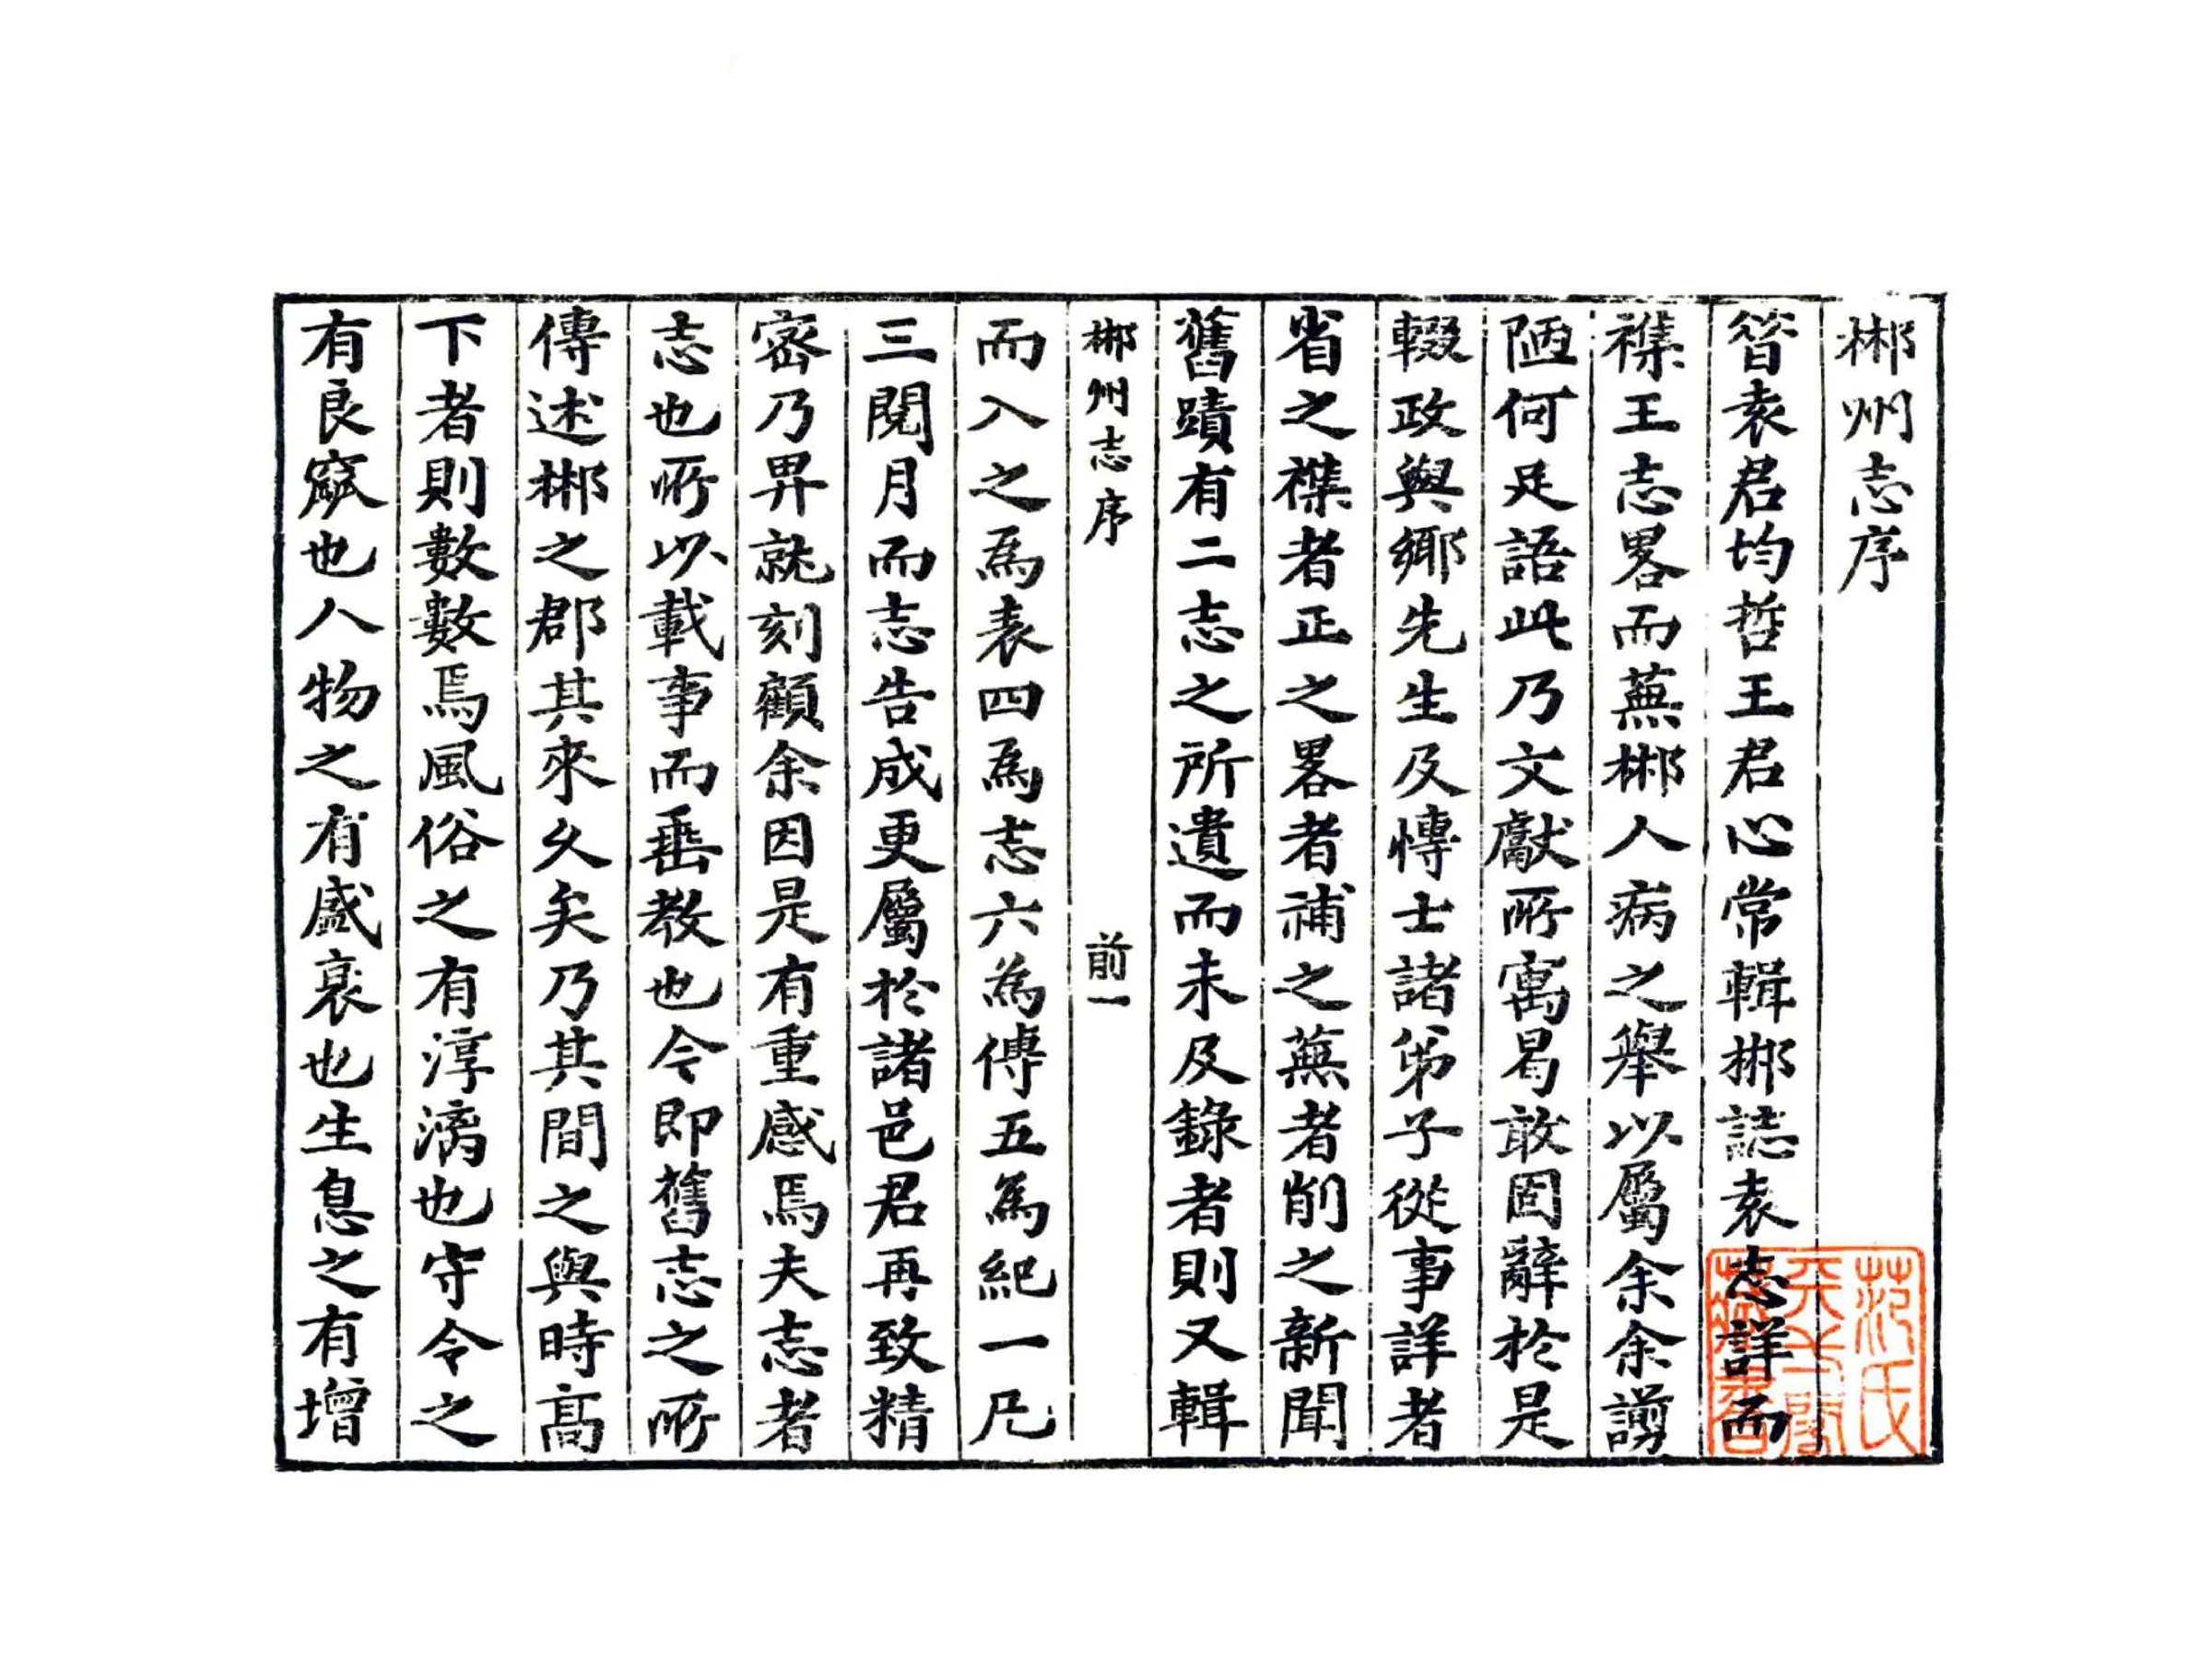 郴州志序
昝袁君均哲王君心常輯郴誌袁志詳而
襍王志畧而蕪郴人病之舉以屬余余謭
陋何足語此乃文獻所寓曷敢固辭於是
輟政與鄉先生及博士諸弟子從事詳者
省之襍者正之畧者補之蕪者削之新聞
舊蹟有二志之所遺而未及錄者則又輯
郴州志序
前一
而入之為表四為志六為傳五為紀一凡
三閱月而志告成更屬於諸邑君再致精
密乃畀就刻顧余因是有重感焉夫志者
志也所以載事而垂教也今即舊志之所
傳述郴之郡其來久矣乃其間之與時高
下者則數數焉風俗之有淳漓也守令之
有良窳也人物之有盛衰也生息之有增
范氏
天一閣
藏書